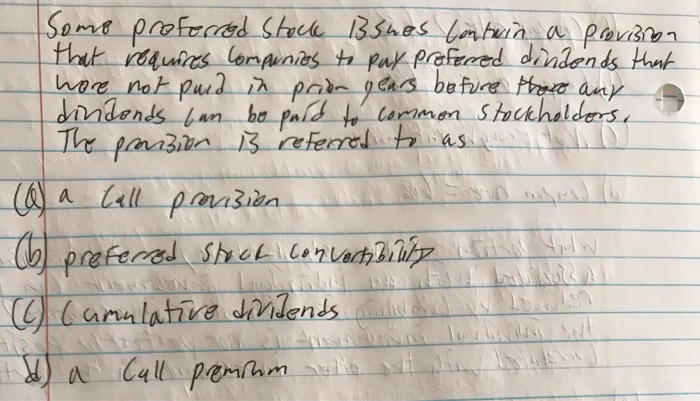 Some preferred stock issues contain a provision
that requires companies to pay preferred dividends that
were not paid in prior years before any
dividends can be paid to common stockholders.
The provision is referred to as
(a) a call provision
(b) preferred stock convertibility
(c) cumulative dividends
(d) a call premium